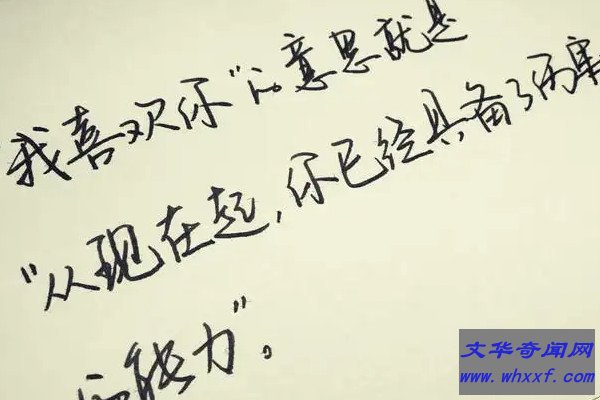 我喜欢你"的意思就是
"从现在起,你已经具备了伤害
的能力"。
文华奇闻网
www.whxxf.com